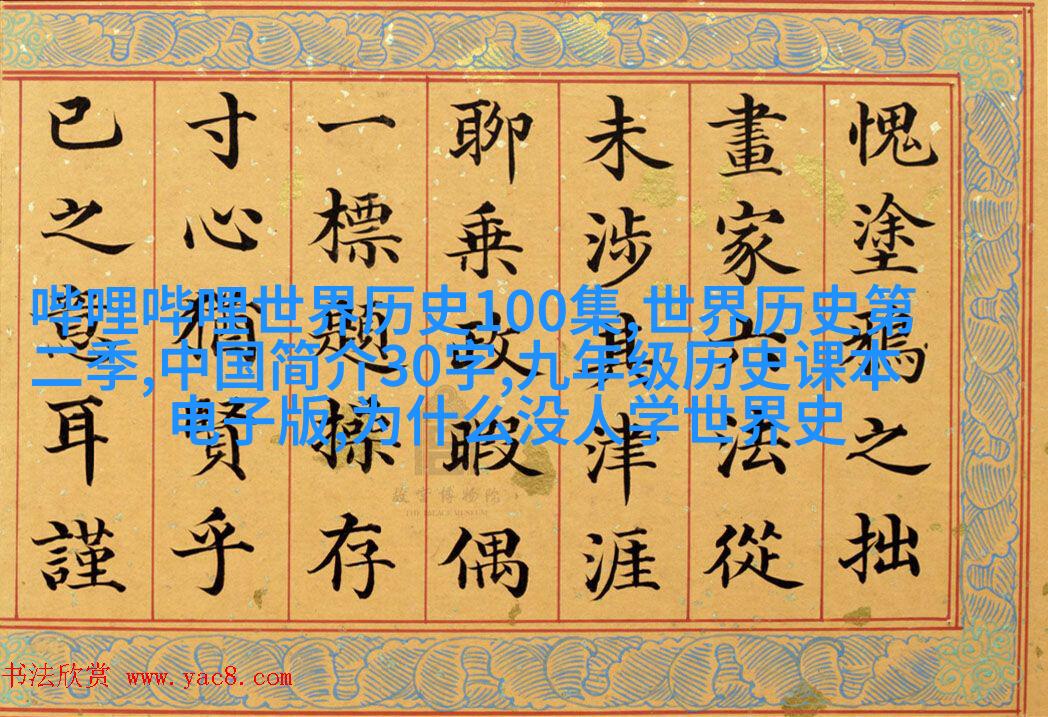 愧塗鴉之拙
畫家六法從
未涉其津涯
聊乘政暇偶
一標題操存
寸心猶賢乎
已之意耳謹
哔哩哔哩世界历史100集,世界历史第
二季,中国简介30字,九年级历史课本
电子版,为什么没人学世界史
故宫博物院
THE PALACE MUSEUM
书法欣赏 www.yac8.com